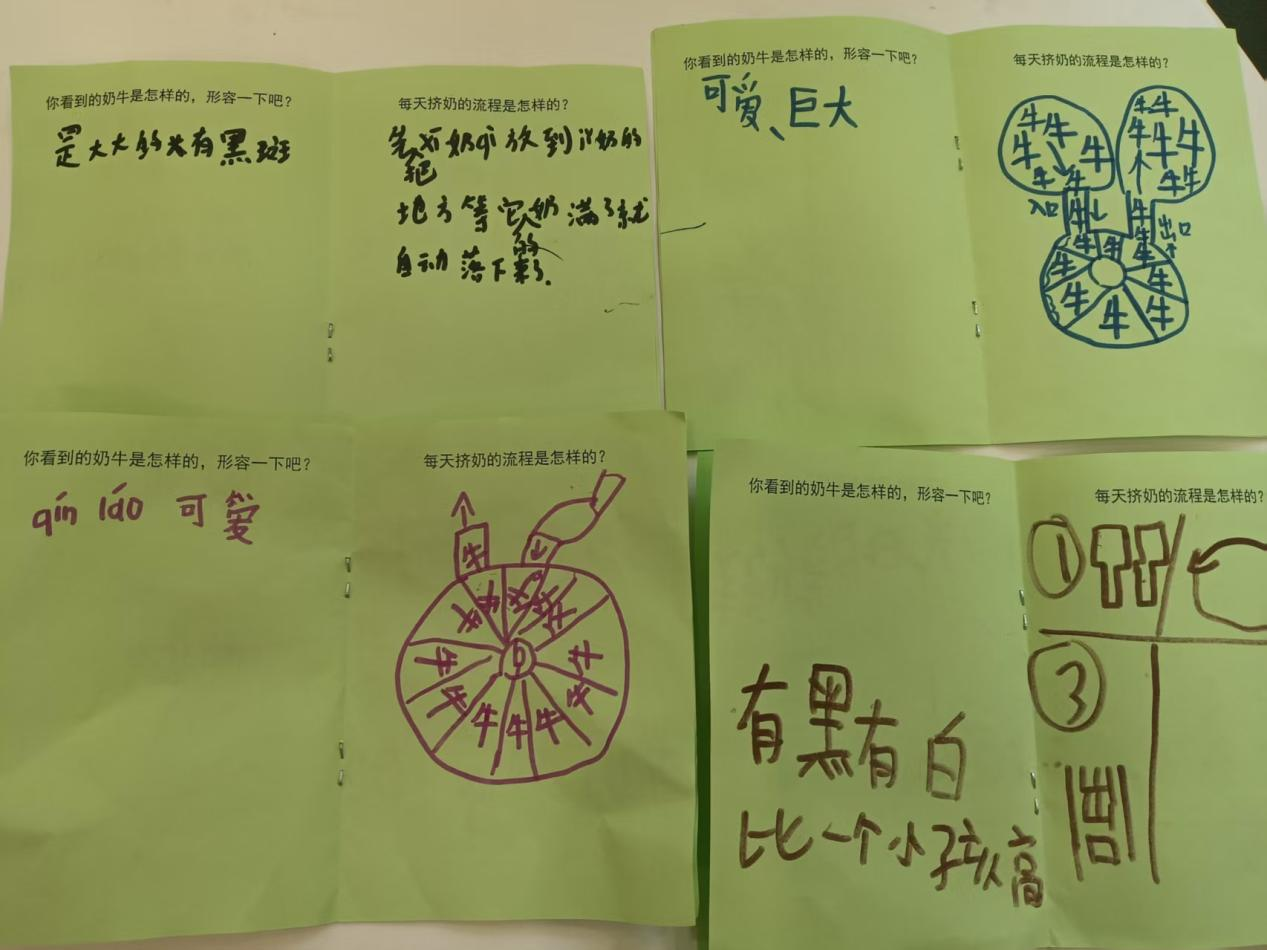 你看到的奶牛是怎样的，形容一下吧？
是大大的兴有黑斑
每天挤奶的流程是怎样的？
先把xī奶qì放到jǐ奶的
地方等它的奶满了就
自动落下来了.
你看到的奶牛是怎样的，形容一下吧？
可爱、巨大
每天挤奶的流程是怎样的？
牛牛牛牛牛牛
牛牛牛牛牛牛牛
入口 牛 牛 出口
牛牛牛
牛 牛
牛 牛 牛
你看到的奶牛是怎样的，形容一下吧？
qín láo 可爱
每天挤奶的流程是怎样的？
牛
牛牛牛牛牛
牛 牛
牛 牛
牛牛牛
你看到的奶牛是怎样的，形容一下吧？
有黑有白
比一个小孩高
每天挤奶的流程是怎样的？
①
③